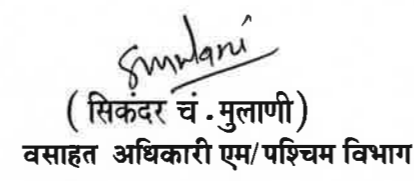 Smulani
( सिकंदर चं . मुलाणी )
वसाहत अधिकारी एम/पश्चिम विभाग